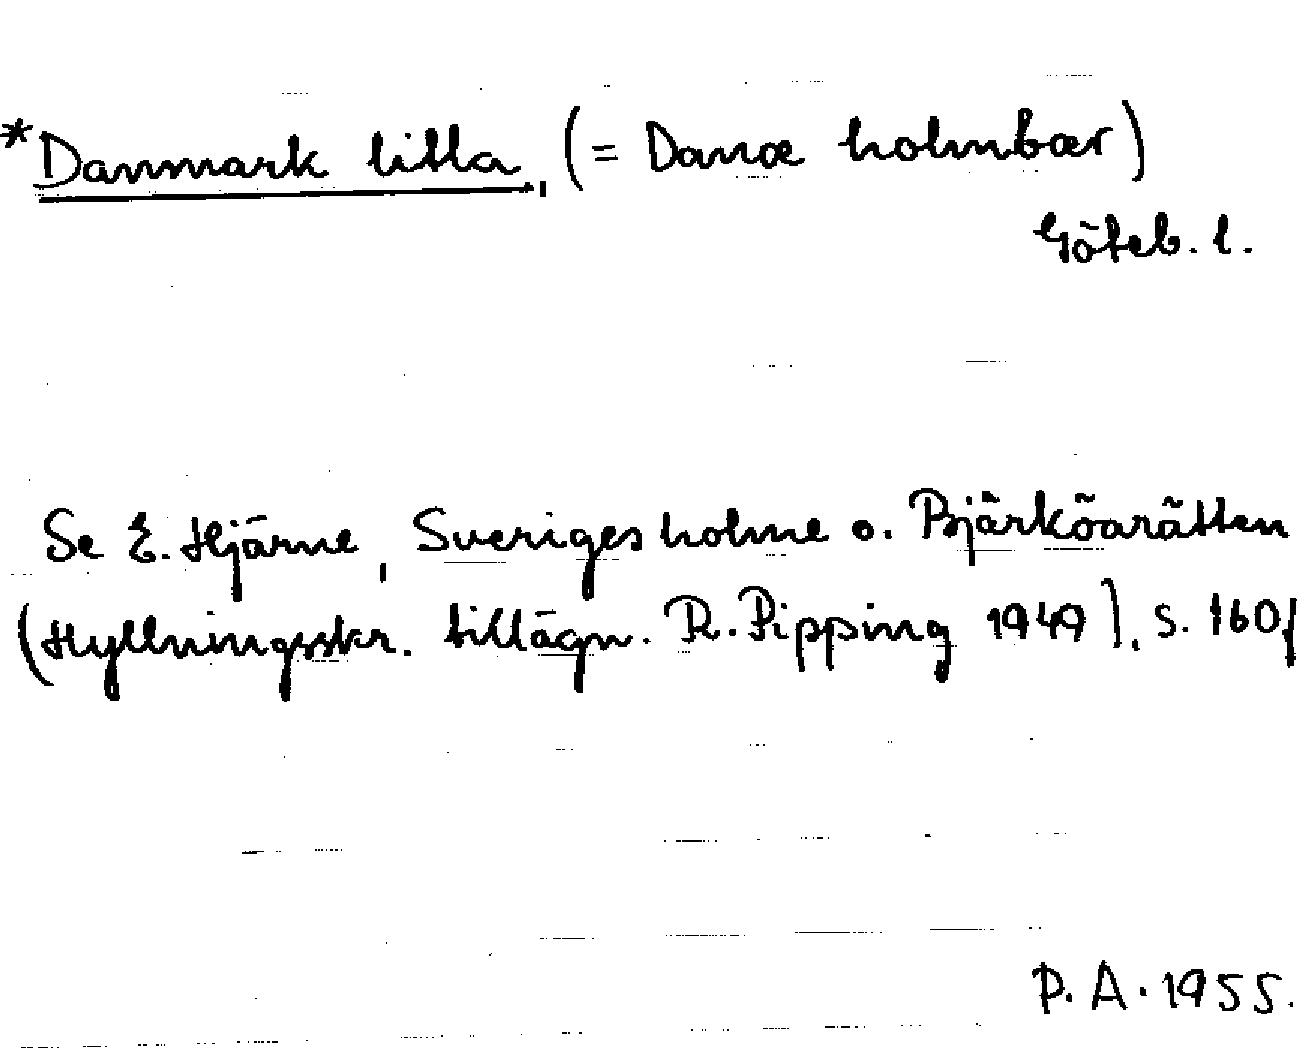 *Danmark litla, (= Danæ holmbær)
Göteb. l.
Se E. Hjärne, Sveriges holme o. Bjärköarätten
(Hyllningsskr. tillägn. R. Pipping 1949), s. 160f
P. A. 1955.